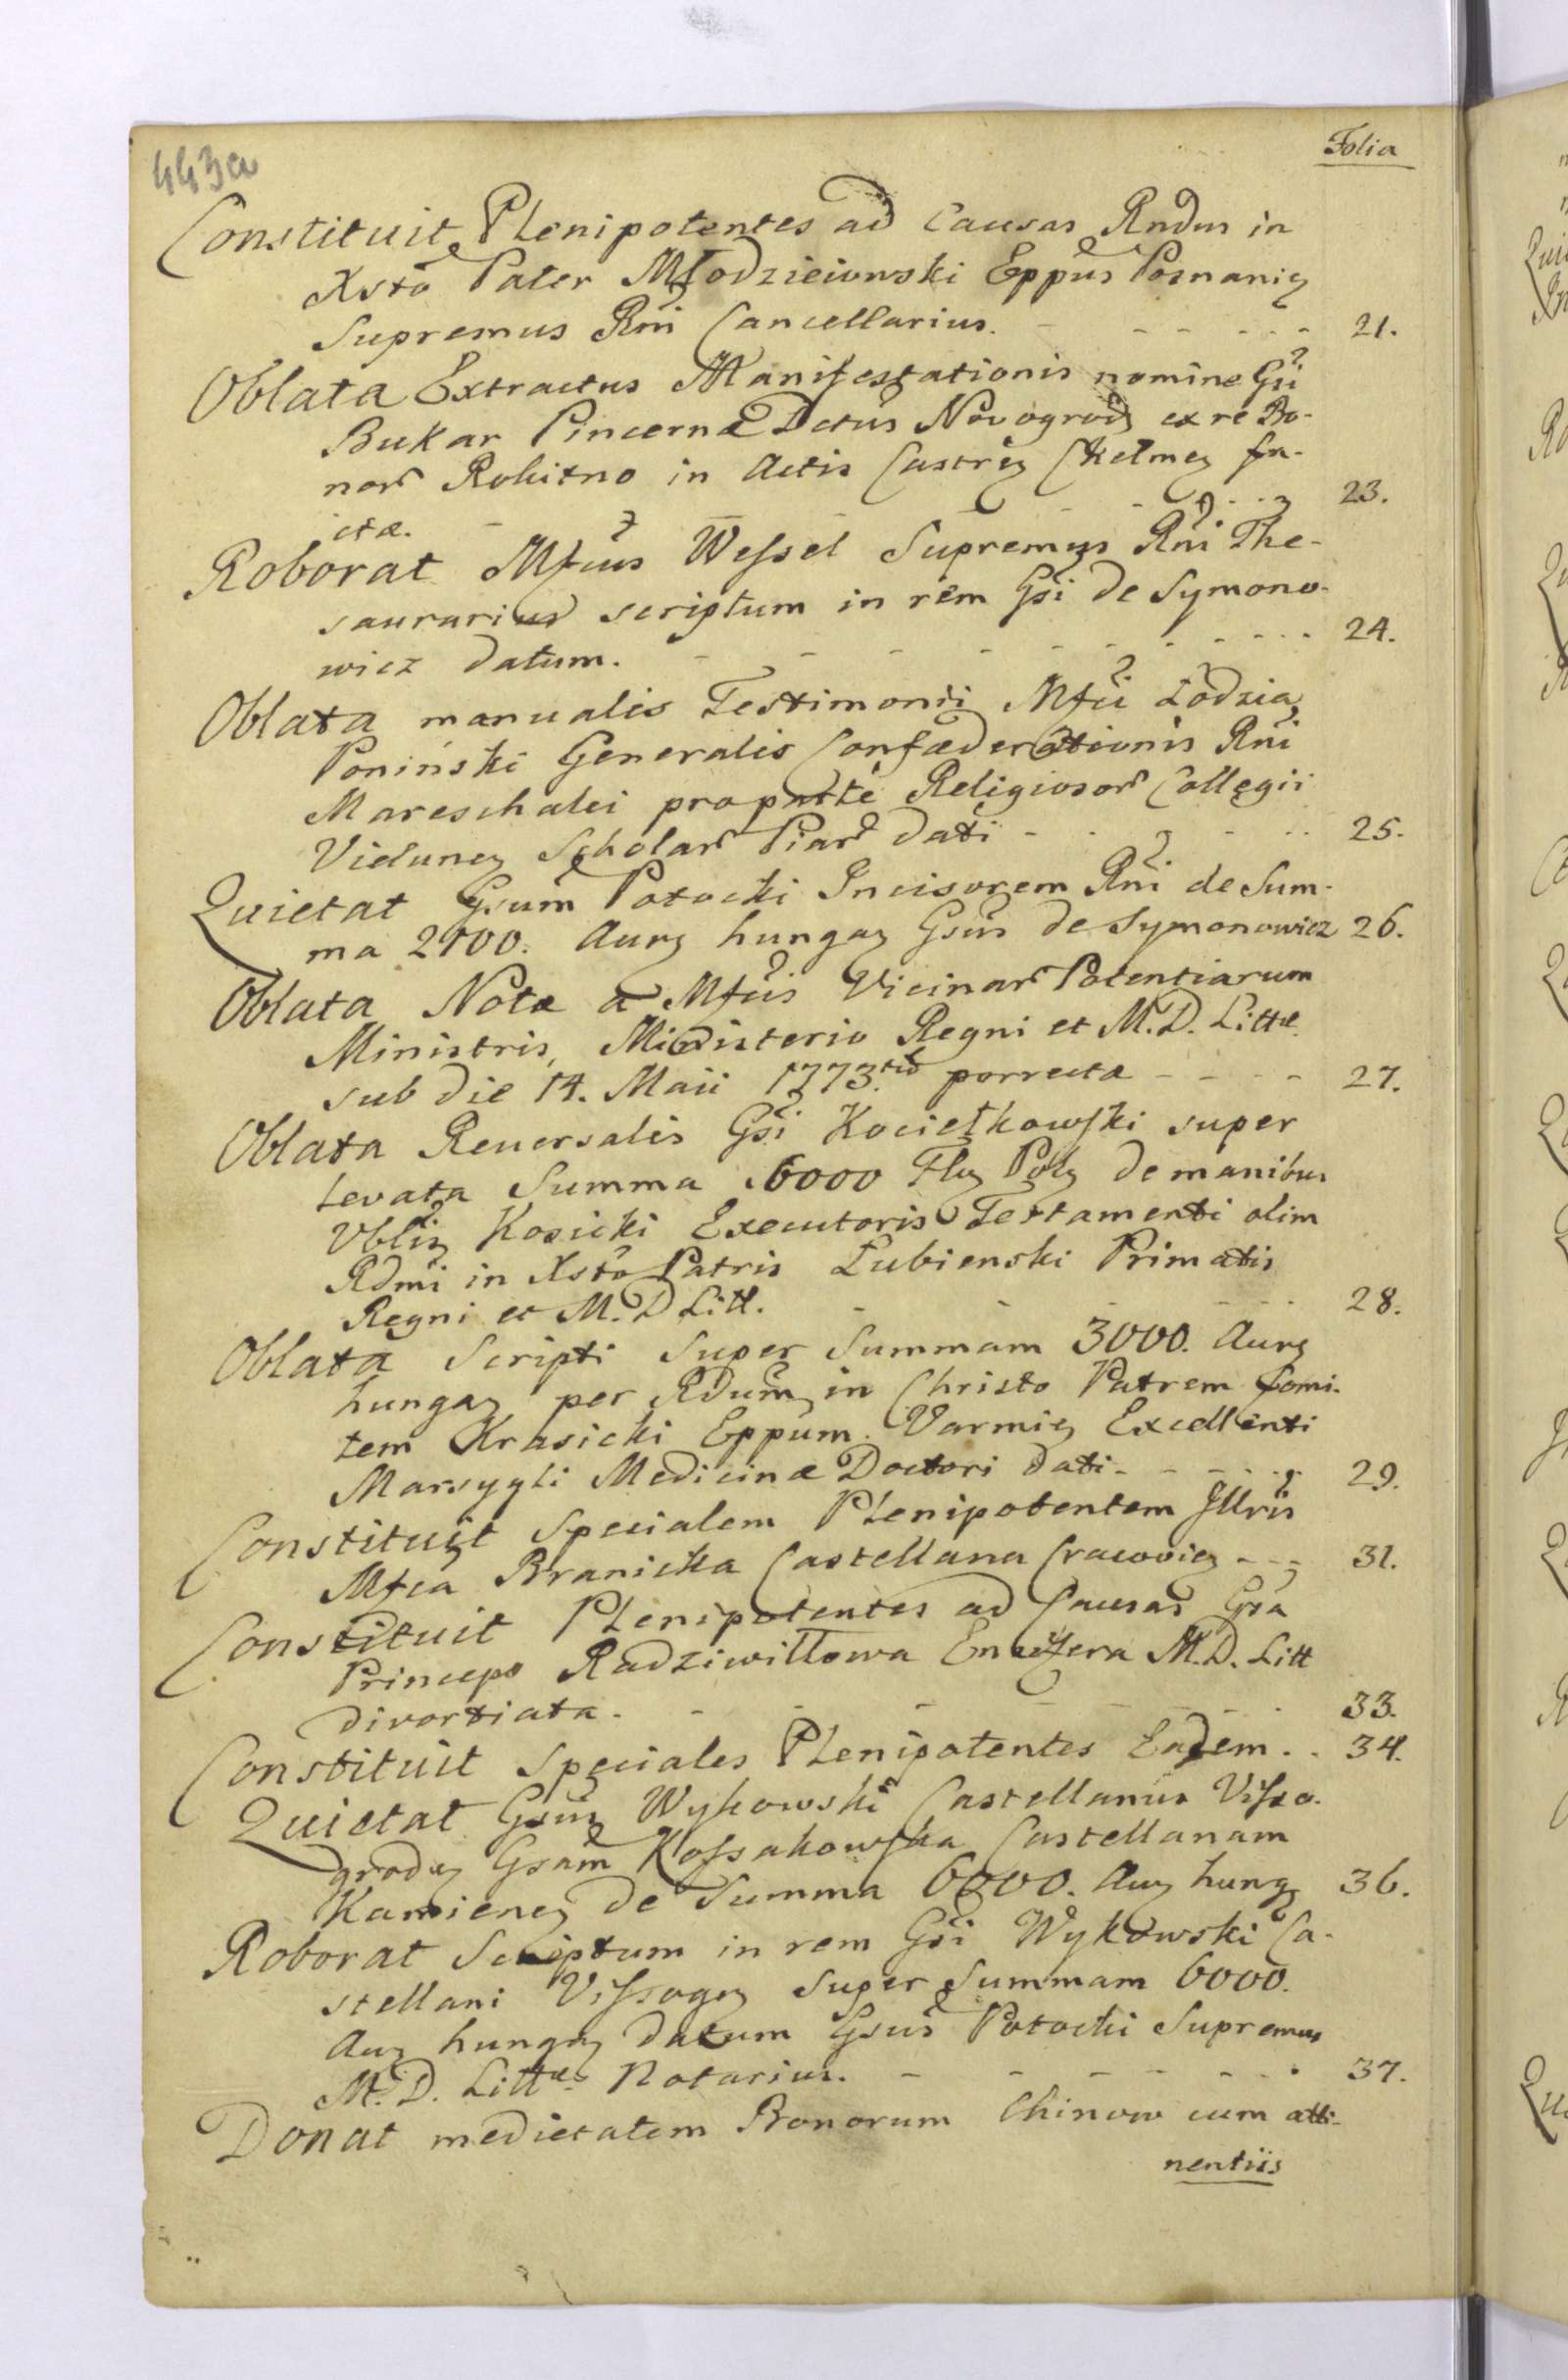 443a
Folia
Constituit Plenipotentes ad Causas Rndus in
Xsto Pater Młodzieiowski Eppus Posnanię
Supremus Rni Cancellarius. - - - - - 21.
Oblata Extractus Manifestationis nomine Gsi
Bukar Pincernæ Dctus Novogrodz ex re Bo-
nor Rokitno in Actis Castrez Chelmez fa-
ctæ. - - - - - 23.
Roborat Mfcus Wessel Supremus Rni The-
saurarius scriptum in rem Gsi de Symono-
wicz datum. - - - - - 24.
Oblata manualis Testimonii Mfci Łodzia
Poniński Generalis Confæderationis Rni
Mareschalci pro parte Religiosor Collegii
Vielunez Scholar Piar dati - - - - 25.
Quietat Gsum Potocki Incisorem Rni de Sum-
ma 2100. Aurz hungaz Gsus de Symonowicz 26.
Oblata Notæ a Mfcis Vicinar Potentiarum
Ministris, Ministerio Regni et M. D. Littæ
sub die 14. Maii 1773.tio porrectæ - - - - 27.
Oblata Reversalis Gsi Kociełkowski super
levata Summa 6000 Flz Polz de manibus
Vbliz Kosicki Executoris Testamenti olim
Rdmi in Xsto Patris Łubienski Primatis
Regni et M. D Litt. - - - - 28.
Oblata Scripti Super Summam 3000. Aurz
hungaz per Rdum in Christo Patrem Comi-
tem Krasicki Eppum Varmiz Excellenti
Marsygli Medicinæ Doctori dati - - - - 29.
Constituit Specialem Plenipotentem Illris
Mfca Branicka Castellana Cracoviez - - - 31.
Constituit Plenipotentes ad Causas Gsa
Princeps Radziwiłłowa Ensifera M. D. Litt
divortiata. - - - - - 33.
Constituit Speciales Plenipotentes Eadem. . 34.
Quietat Gsus Wykowski Castellanus Visso-
grodz Gsam Kossakowska Castellanam
Kamienez de Summa 6000. Auz hungz 36.
Roborat Scriptum in rem Gsi Wykowski Ca-
stellani Vissogz Super Summam 6000.
Auz hungaz datum Gsus Potocki Supremus
M. D. Littæ Notarius. - - - - - 37.
Donat medietatem Bonorum Chinow cum atti-
nentiis